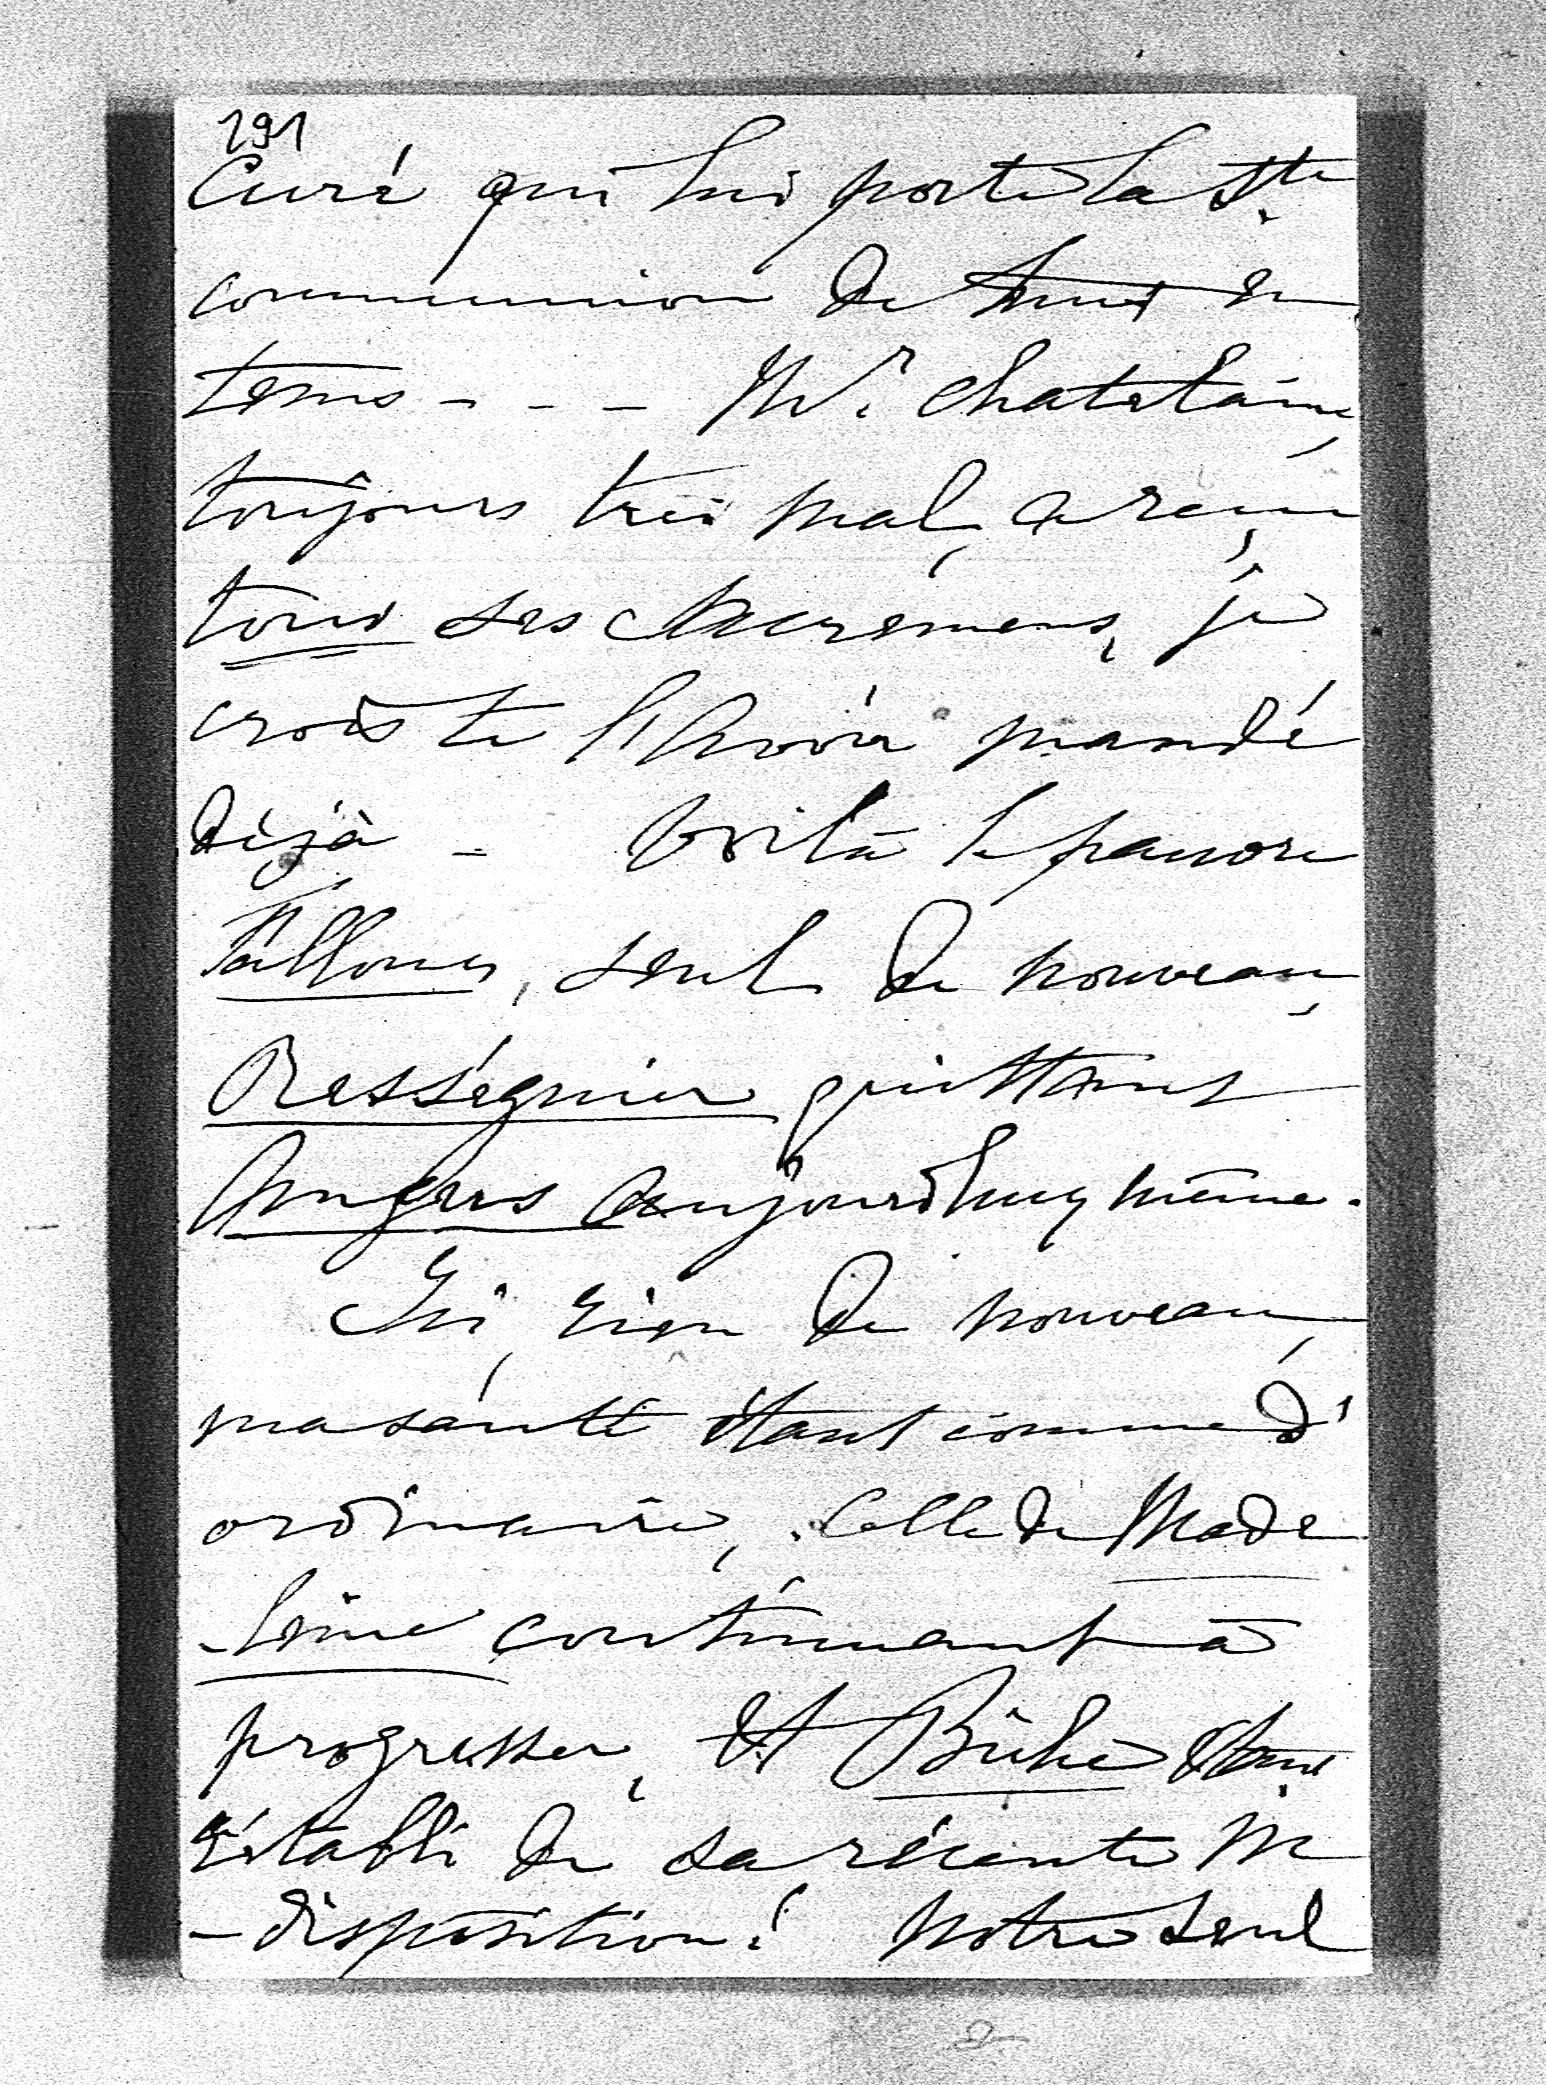 191
Curé qui lui porte la Ste
communion de tems en
tems - - - Mr Chatelain,
toujours très mal, a reçu
tous ses Sacremens, je
crois te l'avoir mandé
déjà - Voilà le pauvre
Falloux, seul de nouveau,
Rességuier quittant
Angers aujourdhuy même.
Ici, rien de nouveau,
ma santé étant comme d'
ordinaire, celle de Made
-leine continuant à
progresser, et Biche étant
rétabli de sa récente in
-disposition! Notre seul